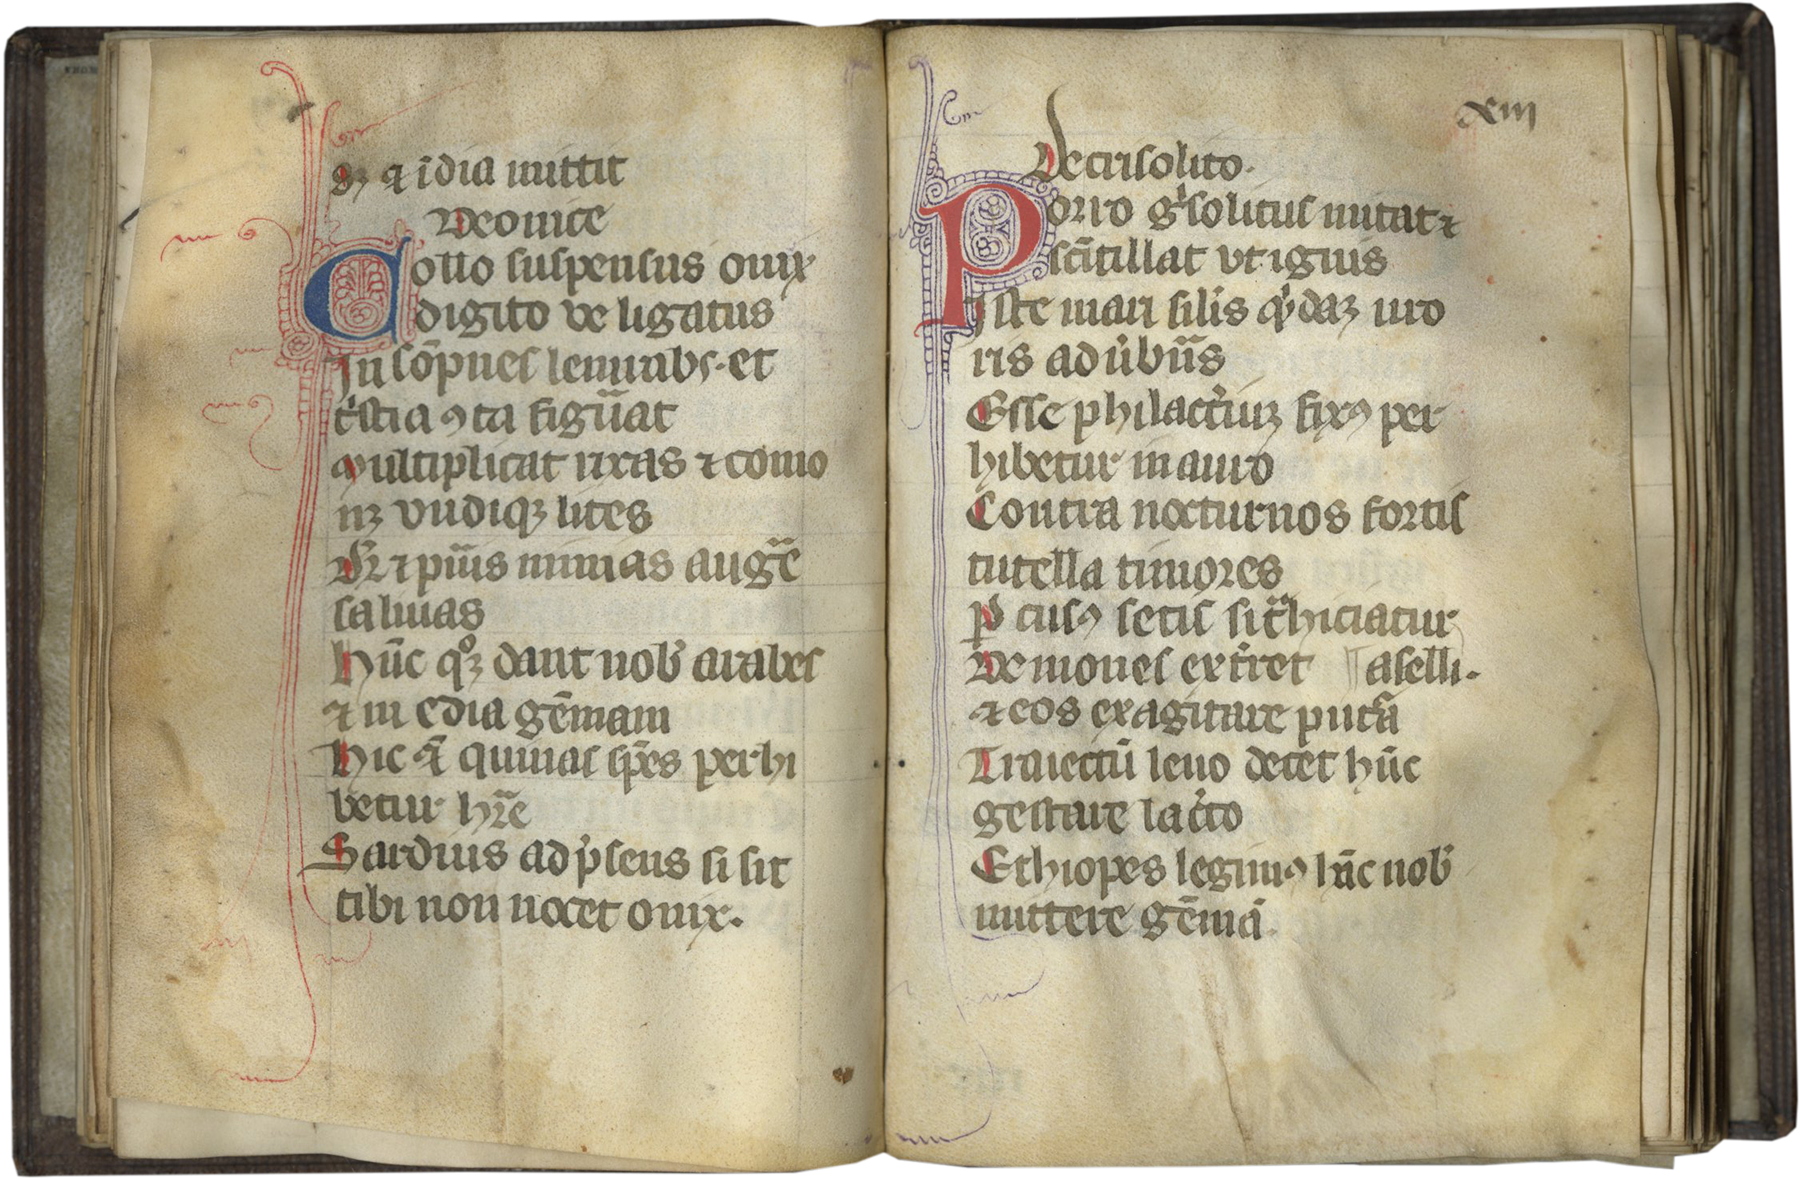 Sꝫ ⁊ īdia mittit
De onice
Collo suspensus onix
digito ve ligatus
In sōpnes lemurabꝰ. et
tͥstia ꝯta figūat
Multiplicat rixas ⁊ como
nꝫ vndiqꝫ lites
Et ⁊ pūis nimias augēe
saliuas
Hūc qͦꝫ dant nob̕ arabes
⁊ in edia gēmam
Hic ⁊̄ quinas sp̄es perhi
betur hr̄e
Sardius ad p̕sens si sit
tibi non nocet onix.
xiii
De crisolito.
Porro gͥsolitus mitat ⁊
scītillat vt ignis
Iste mari silis qͥdaꝫ uro
ris ad ūbūs
Esse philactͥiuꝫ fixꝯ per
hibetur in auro
Contra nocturnos fortis
tutella timores
P̱cusꝯ setis si tͣhiciatur
Demones ext̄ret aselli.
⁊ eos exagitare putͣā
Traiectū leuo decet hūc
gestare lac̕to
Ethiopes legimꝯ hūc nob̕
mittere gēmā.